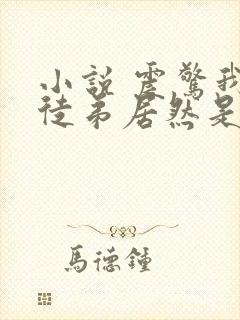 小說 震驚我
徒弟居然是
馬德鍾